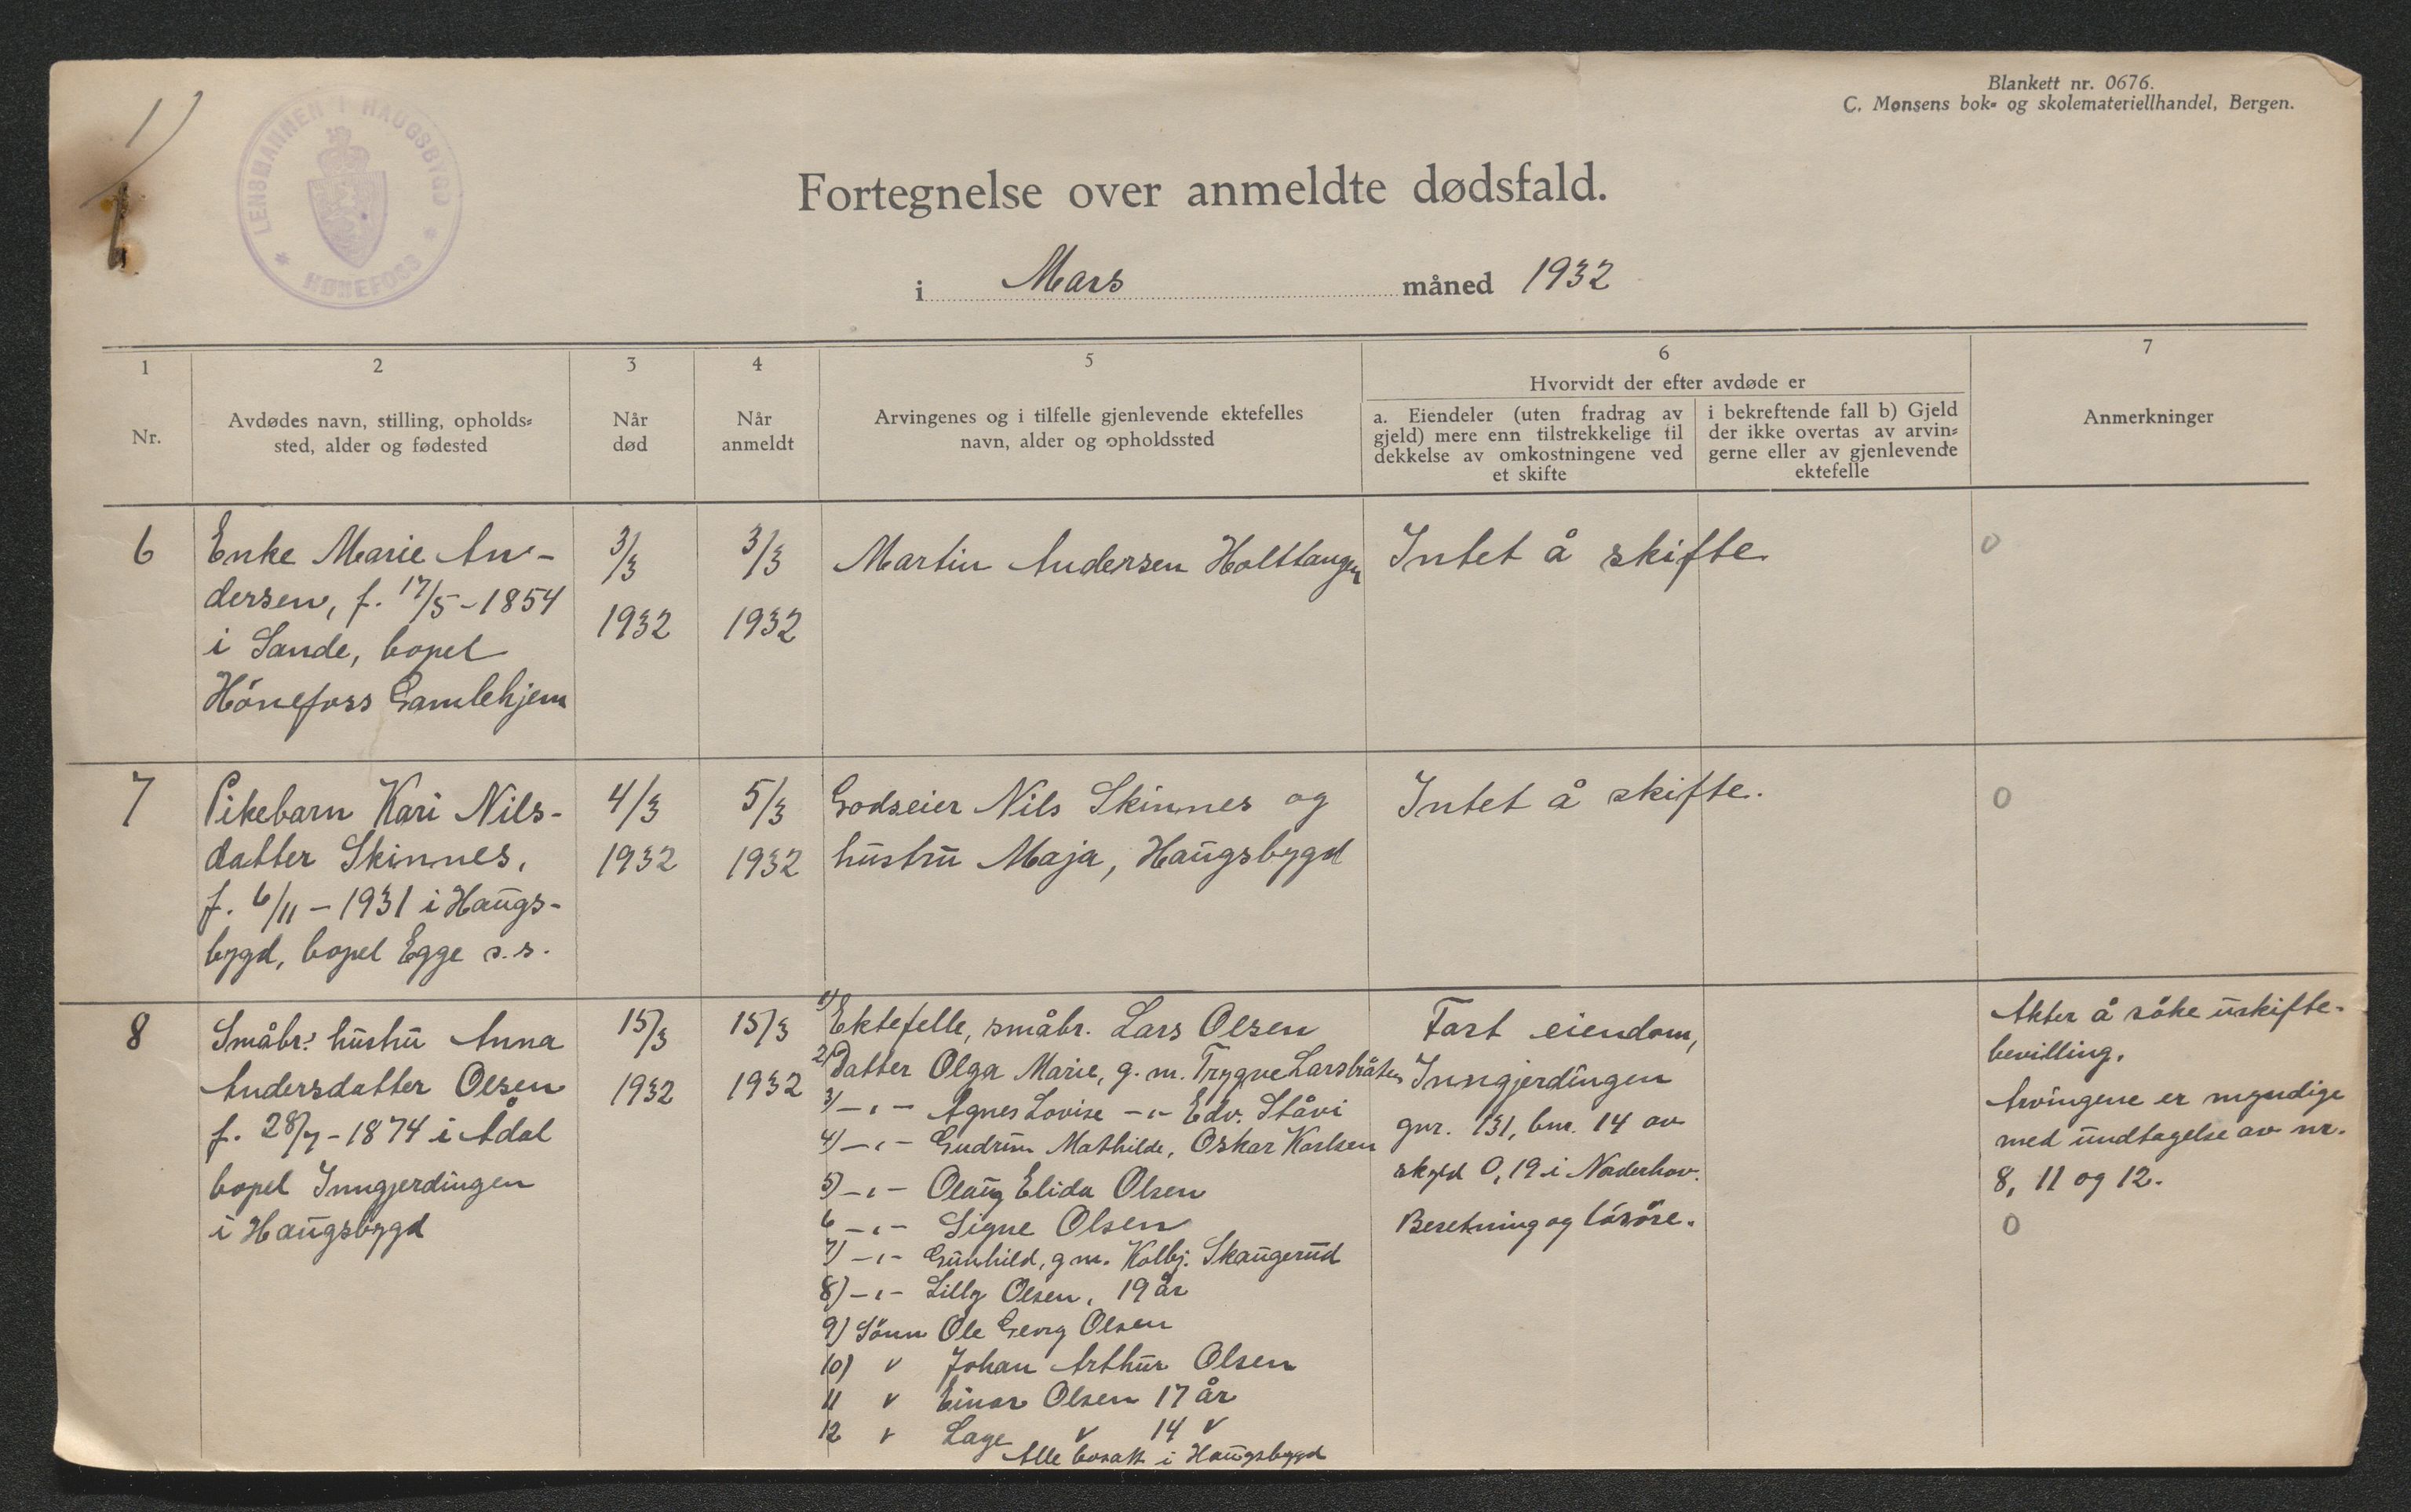 1)
LENSMANNEN I HAUGSBYGD
* HØNEFOSS *
Blankett nr. 0676.
C. Monsens bok= og skolemateriellhandel, Bergen.
Fortegnelse over anmeldte dødsfald.
i Mars måned 1932
1
2
3
4
5
6
7
Nr.
Avdødes navn, stilling, opholds=
sted, alder og fødested
Når
død
Når
anmeldt
Arvingenes og i tilfelle gjenlevende ektefelles
navn, alder og opholdssted
Hvorvidt der efter avdøde er
a. Eiendeler (uten fradrag av
gjeld) mere enn tilstrekkelige til
dekkelse av omkostningene ved
et skifte
i bekreftende fall b) Gjeld
der ikke overtas av arvin=
gerne eller av gjenlevende
ektefelle
Anmerkninger
6
Enke Marie An-
dersen, f. 17/5-1854
i Sande, bopel
Hönefoss Gamlehjem
3/3
1932
3/3
1932
Martin Andersen Holttangen
Intet å skifte
0
7
Pikebarn Kari Nils-
datter Skinnes,
f. 6/11-1931 i Haugs-
bygd, bopel Egge s.s.
4/3
1932
5/3
1932
Godseier Nils Skinnes og
hustru Maja, Haugsbygd
Intet å skifte.
0
8
Småbr.s hustru Anna
Andersdatter Olsen
f. 28/7-1874 i Ådal
bopel Inngjerdingen
i Haugsbygd
15/3
1932
15/3
1932
1) Ektefelle, småbr. Lars Olsen
2) Datter Olga Marie, g.m. Trygve Larsbråten
3) -"- Agnes Lovise -"- Edv. Ståvi
4) -"- Gudrun Mathilde, Oskar Karlsen
5) -"- Olaug Elida Olsen
6 -"- Signe Olsen
7) -"- Gunhild, g m. Kolbj. Skaugerud
8) -"- Lilly Olsen, 19 år
9) Sönn Ole Georg Olsen
10) " Johan Arthur Olsen
11 " Einar Olsen 17 år
12 " Lage " 14 "
Alle bosatt i Haugsbygd
Fast eiendom,
Inngjerdingen
gnr. 131, bnr. 14 av
skyld 0,19 i Norderhov.
Besetning og lösöre.
Akter å söke uskifte-
bevilling.
Arvingene er myndige
med undtagelse av nr.
8, 11 og 12.
0